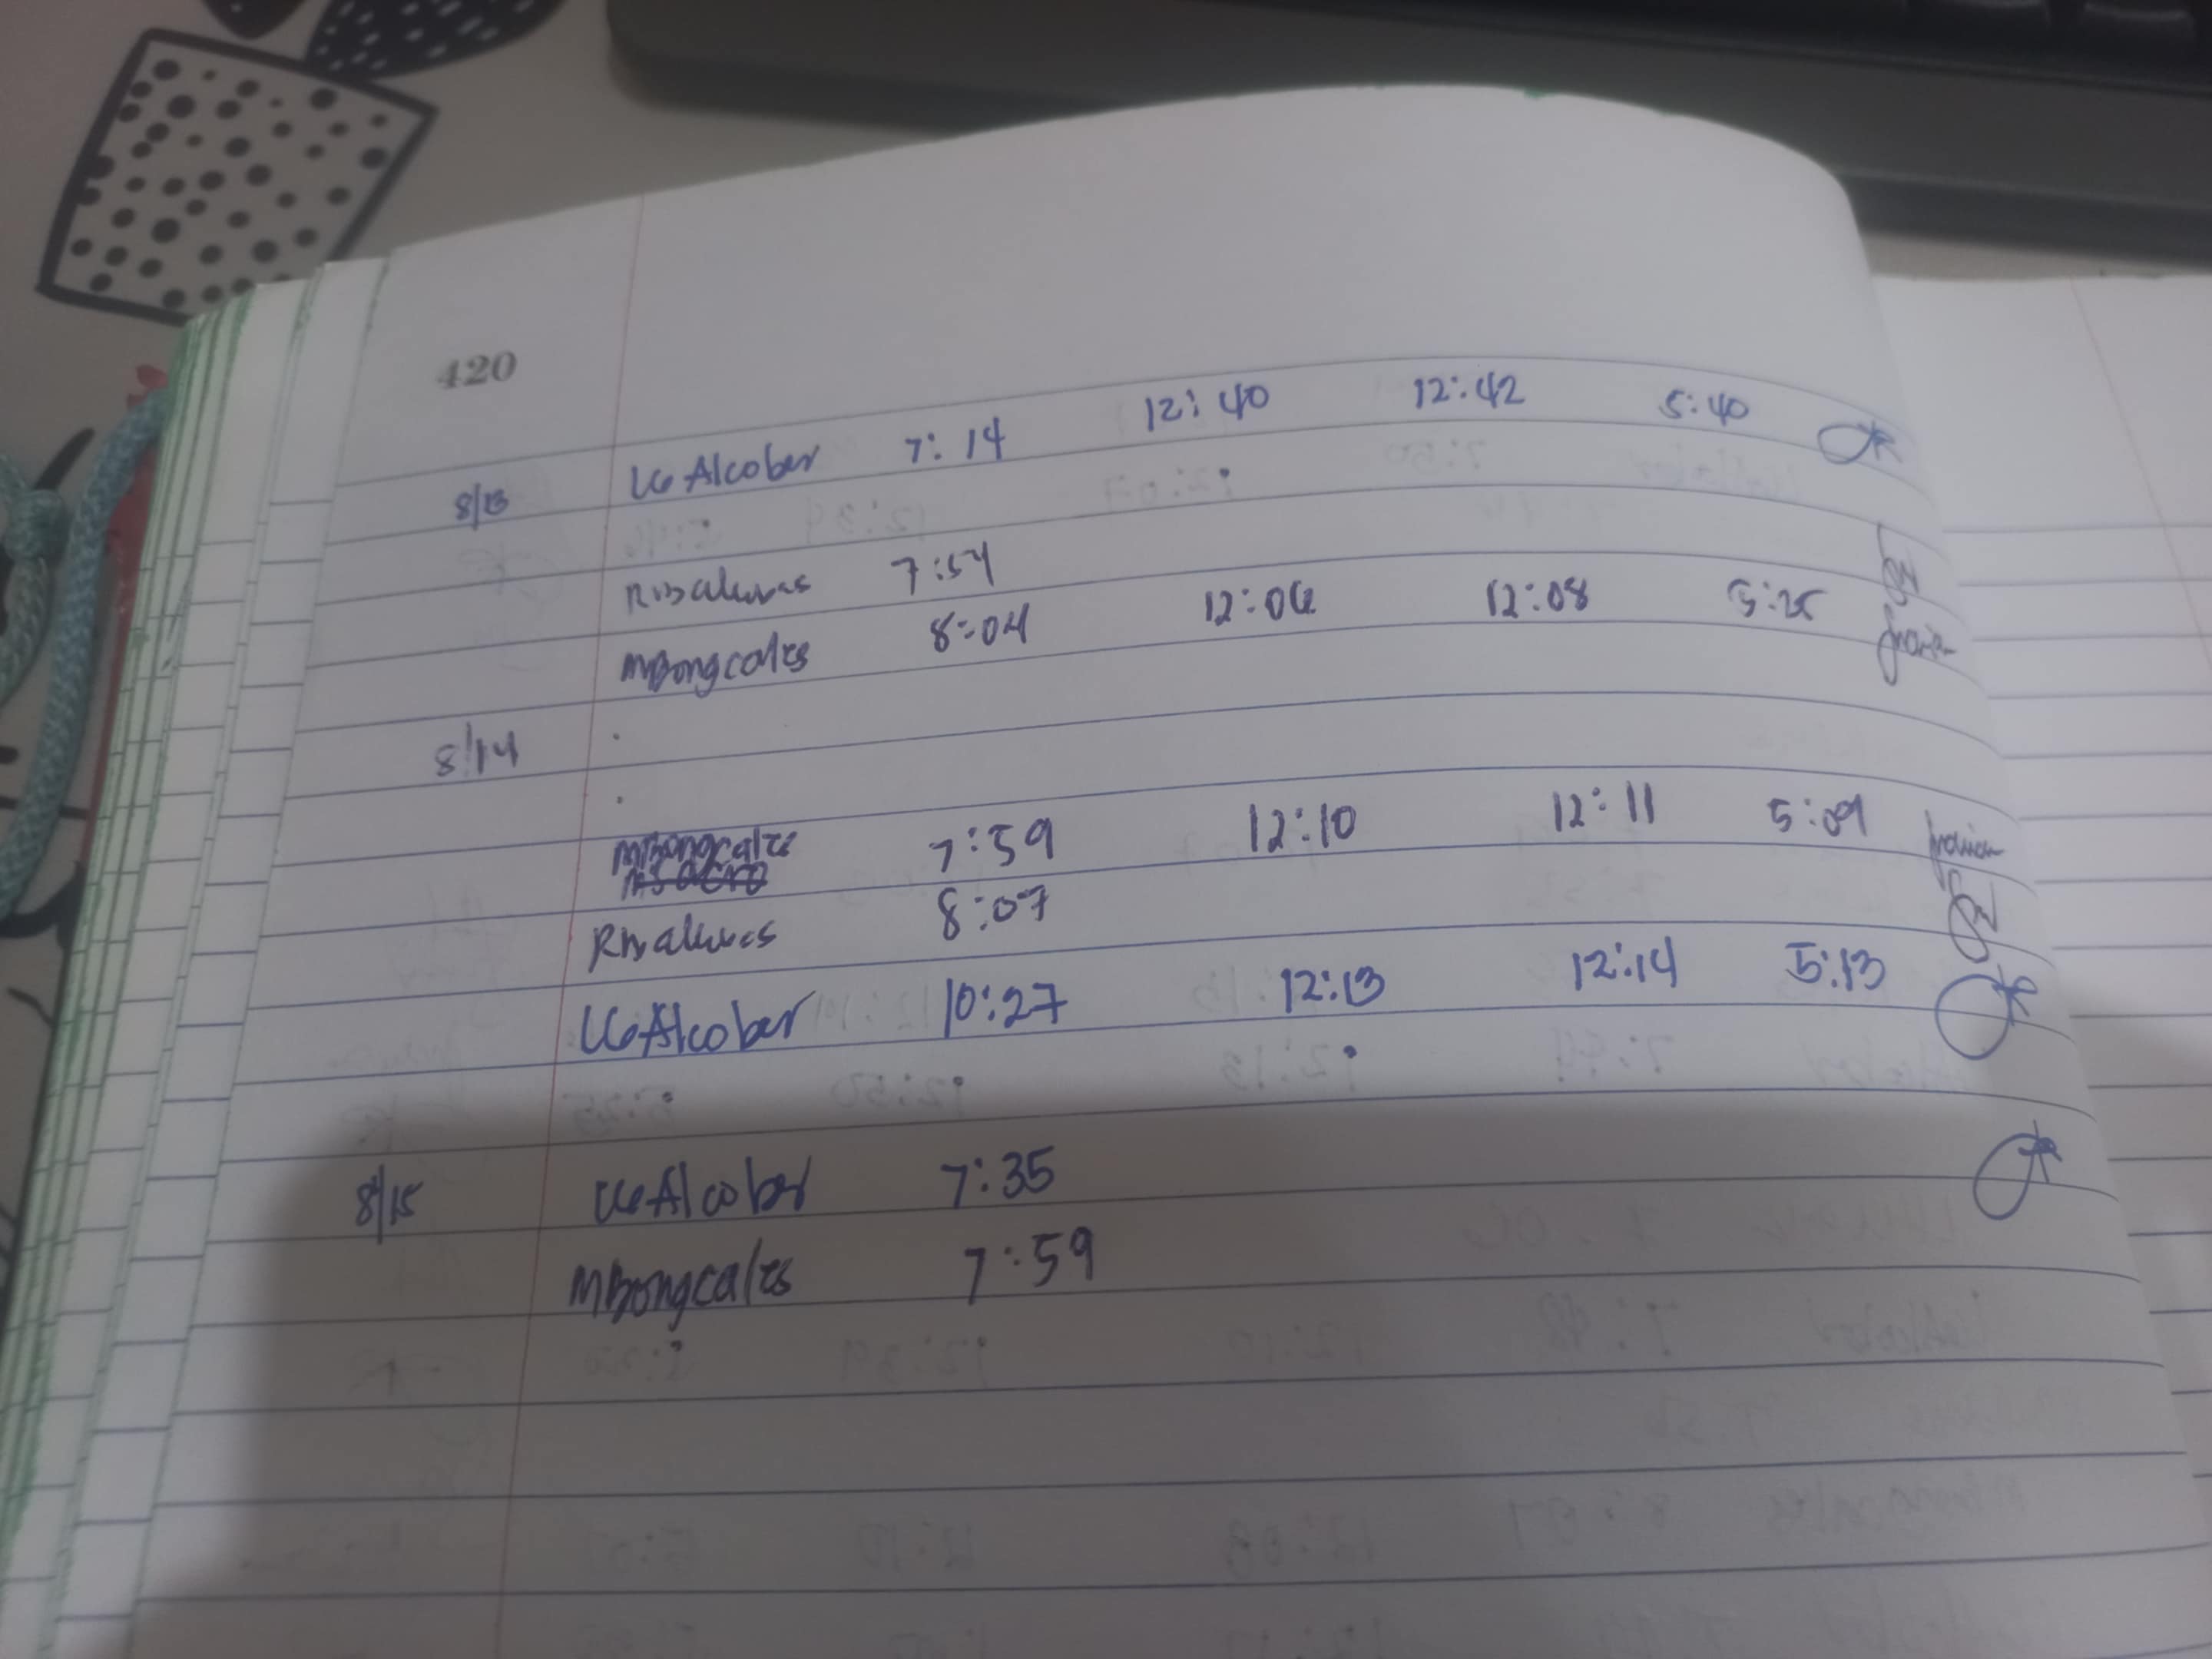 420
8/13 LG Alcober 7:14 12:40 12:42 5:40
7:54
MBongcales 8:04 12:06 12:08 5:25
8/14
MBongcales 7:59 12:10 12:11 5:09
8:07
LG Alcober 10:27 12:13 12:14 5:13
8/15 LG Alcober 7:35
MBongcales 7:59